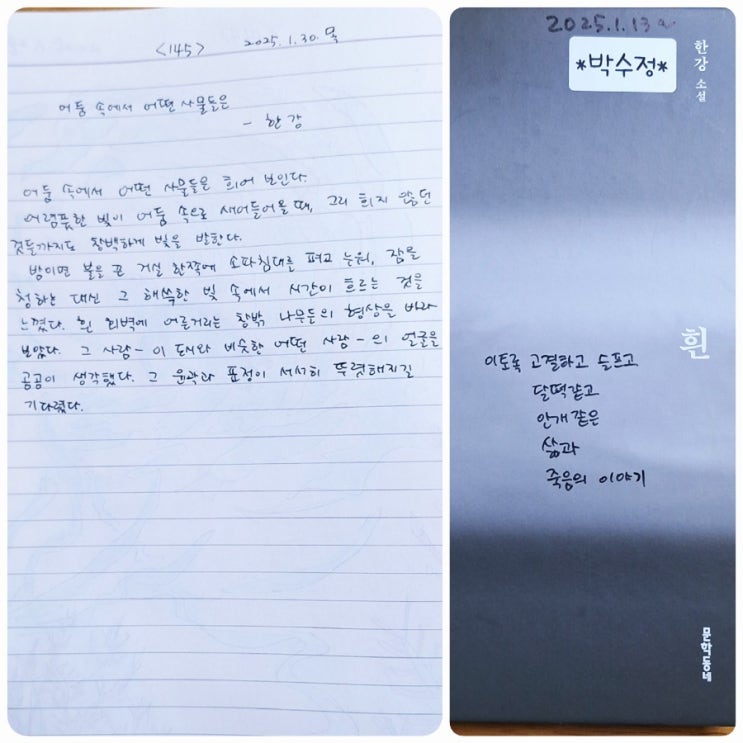 <145> 2025.1.30.목
어둠 속에서 어떤 사물들은
- 한강
어둠 속에서 어떤 사물들은 희어 보인다.
어렴풋한 빛이 어둠 속으로 새어들어올 때, 그리 희지 않던
것들까지도 창백하게 빛을 발한다.
밤이면 불을 끈 거실 한쪽에 소파침대를 펴고 누워, 잠을
청하는 대신 그 해쓱한 빛 속에서 시간이 흐르는 것을
느꼈다. 흰 회벽에 어른거리는 창밖 나무들의 형상을 바라
보았다. 그 사람 - 이 도시와 비슷한 어떤 사람 - 의 얼굴을
곰곰이 생각했다. 그 윤곽과 표정이 서서히 뚜렷해지길
기다렸다.
2025.1.13~
*박수정*
한강 소설
흰
이토록 고결하고 슬프고
달떡같고
안개 같은
삶과
죽음의 이야기
문학동네